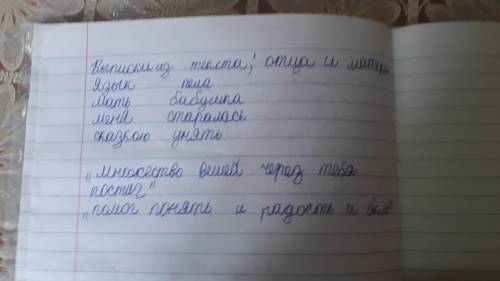 Выписки из текста; отца и матери
язык пела
мать бабушка
меня старалась
сказкою унять
"множество вещей через тебя
постиг"
"помог понять и радость и боль"